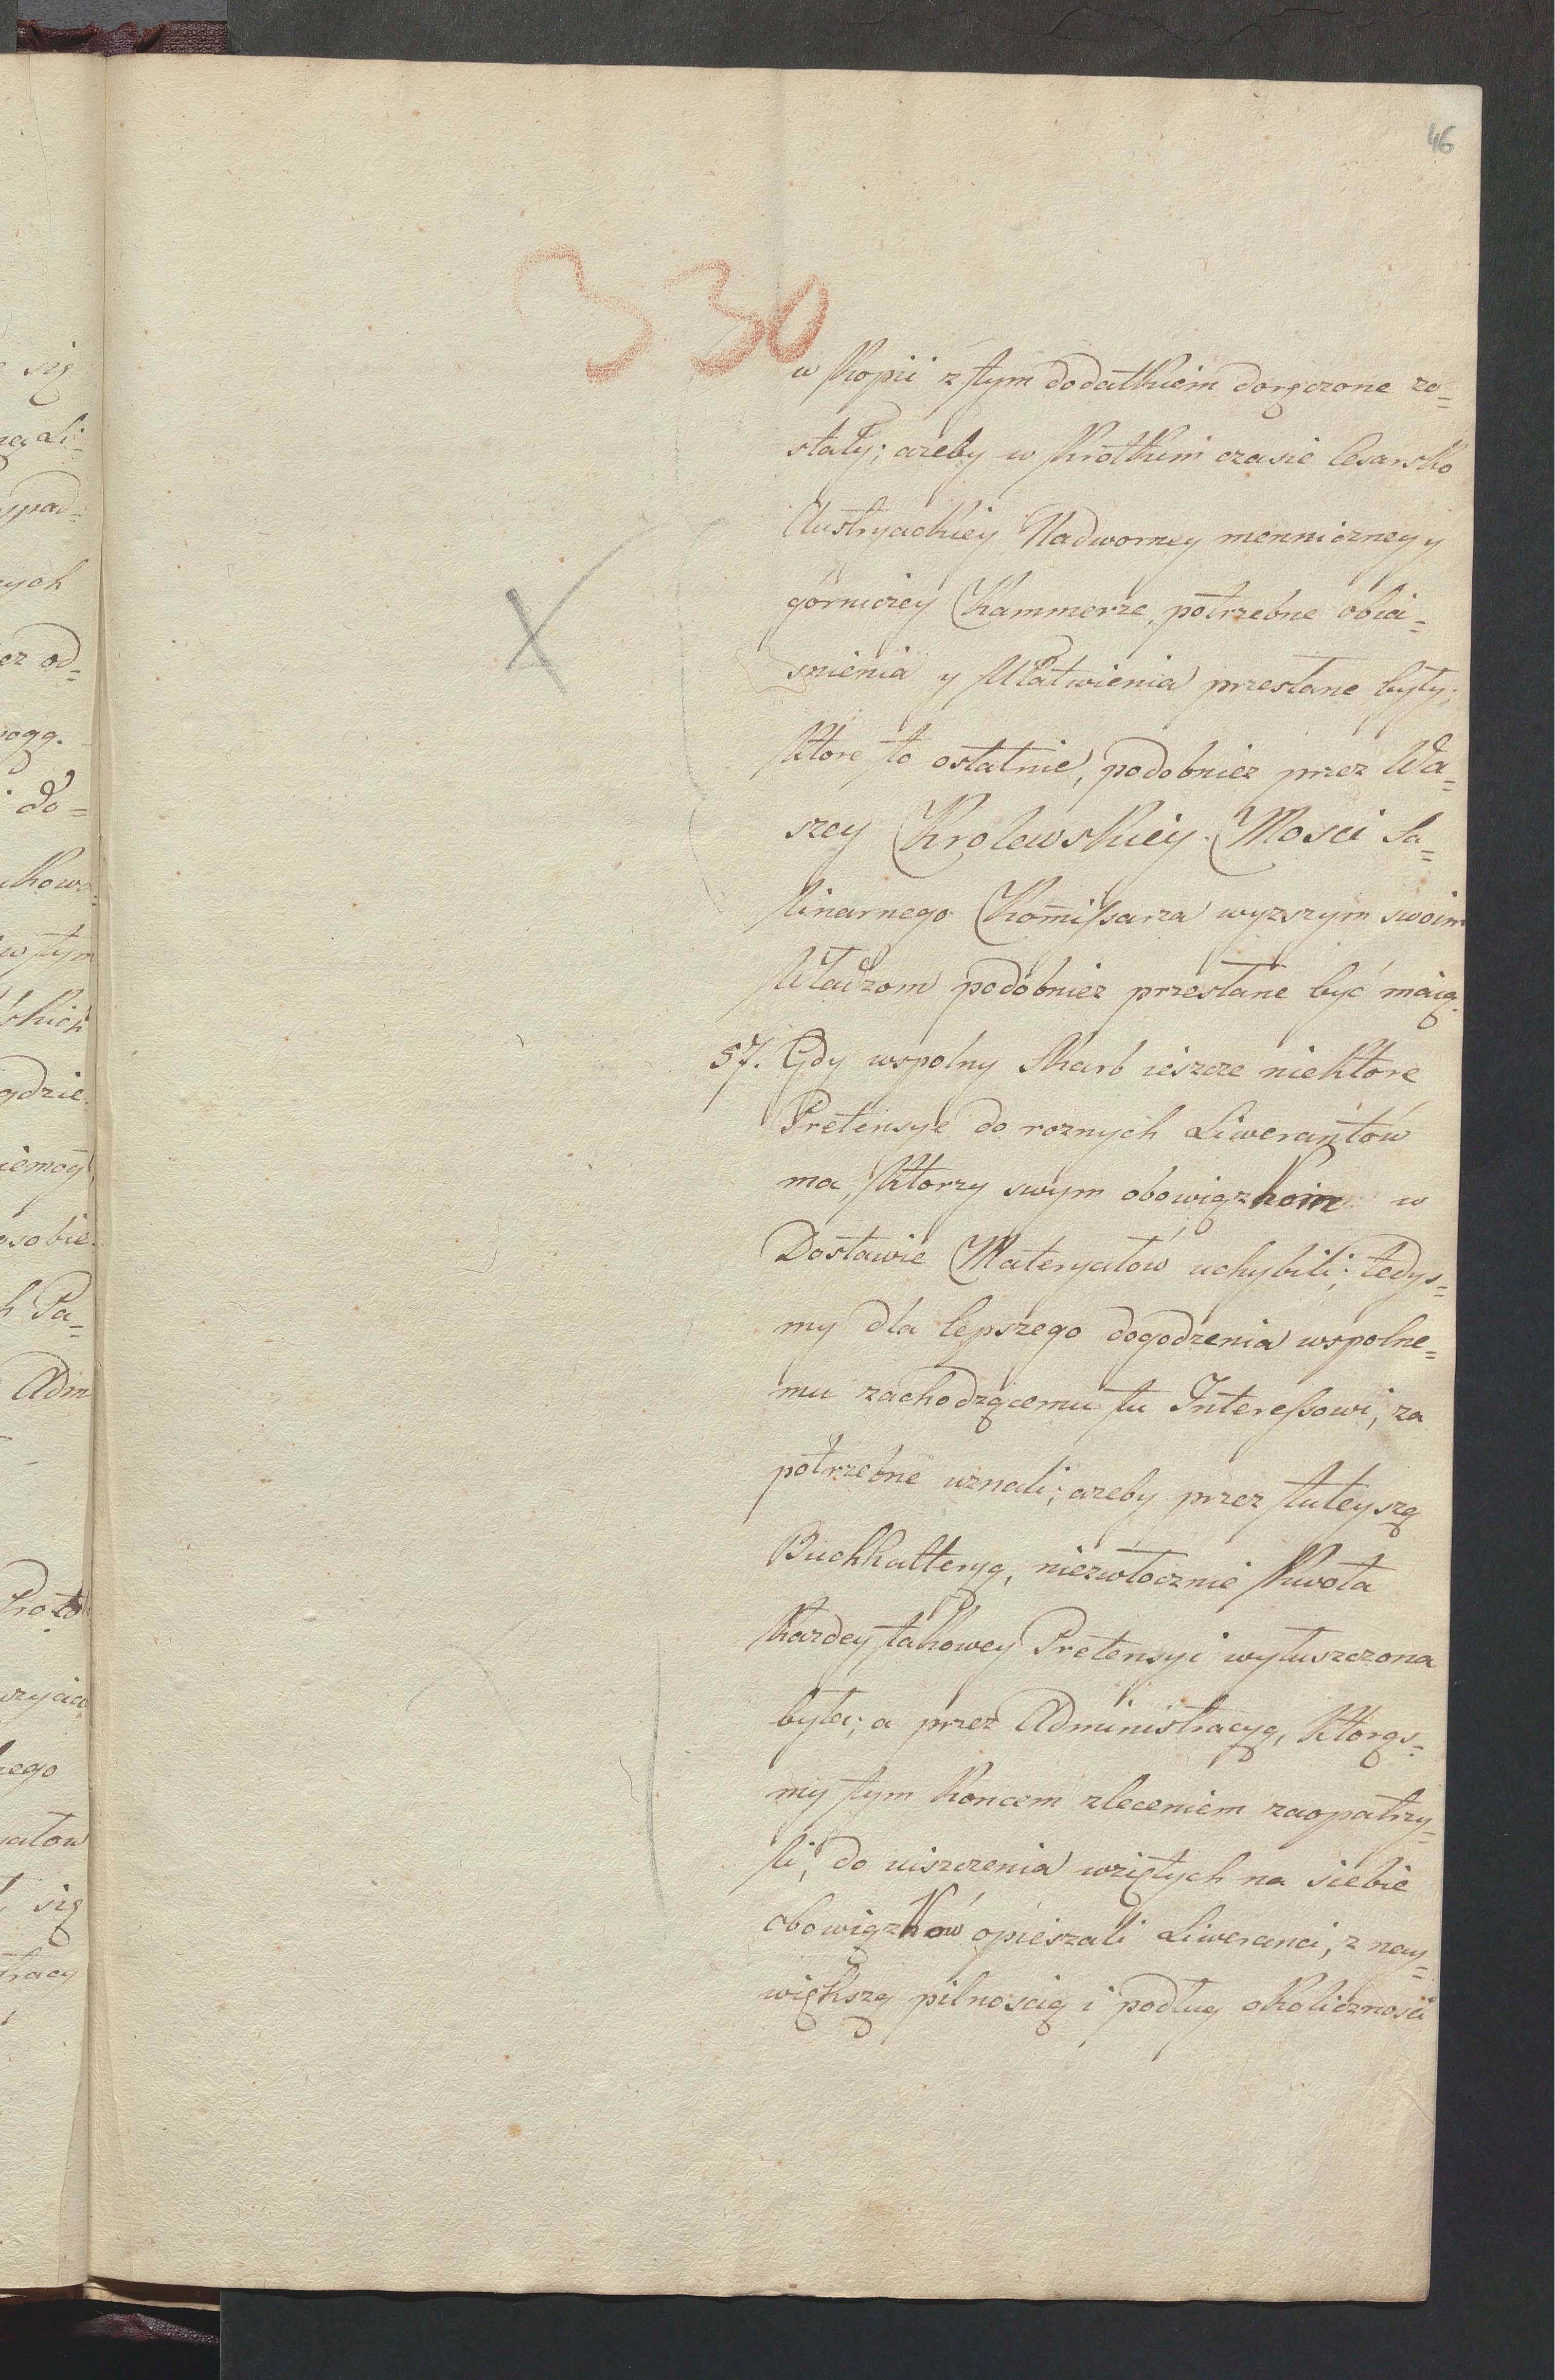 46
330
w Kopii z tym dodatkiem doręczone zo=
stały; azeby w krotkim czasie Cesarsko
Austryackiey Nadworney menniczney y
górniczey Kammerze, potrzebne obia=
snienia y Ułatwienia przesłane były;
ktore to ostatnie, podobniez przez Wa=
szey Krolewskiey Mosci Sa=
linarnego Kom̄issarza wyzszym swoim
Władzom podobniez przesłane być maią.
57. Gdy wspolny Skarb ieszcze niektore
Pretensye do roznych Liwerantów
ma, ktorzy swym obowiązkom w
Dostawie Materyałów uchybili; tedys=
my dla lepszego dogodzenia wspolne=
mu zachodzącemu tu Interessowi, za
potrzebne uznali; azeby przez tuteyszą
Buchhalteryą, niezwłocznie kwota
kazdey takowey Pretensyi wyłuszczona
była; a przez Administracyą, ktorąs=
my tym koncem zleceniem zaopatrzy=
li, do uiszczenia wziętych na siebie
obowiązków opieszali Liweranci, z nay=
większą pilnoscią i podług okolicznosci
się
Li=
ych
od=
do=
w tym
gdzie
h Pa=
Adm
ego
się